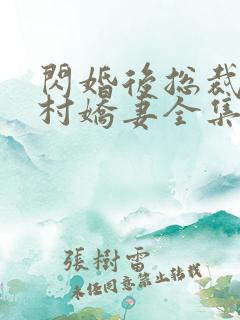 閃婚後總裁
村嬌妻全集
張樹雷
未經同意禁止轉載